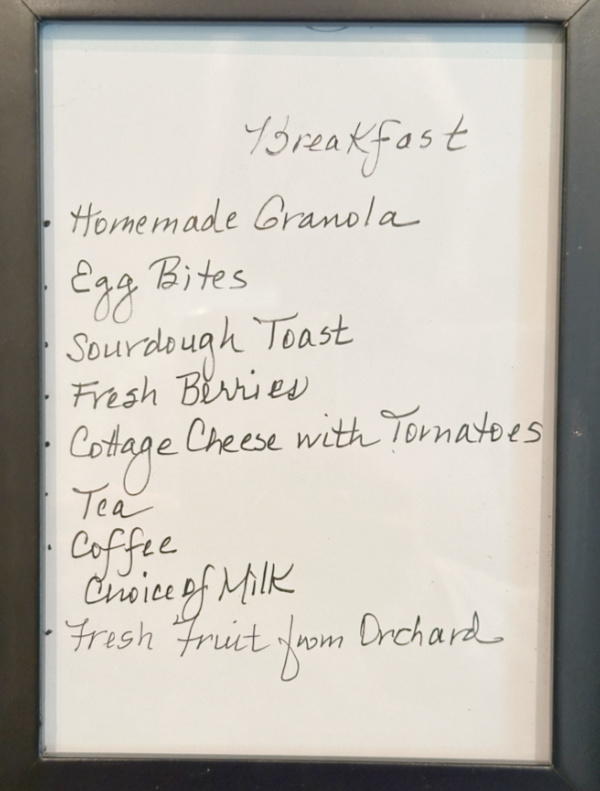 Breakfast
• Homemade Granola
• Egg Bites
• Sourdough Toast
• Fresh Berries
• Cottage Cheese with Tomatoes
• Tea
• Coffee
Choice of Milk
• Fresh Fruit from Orchard